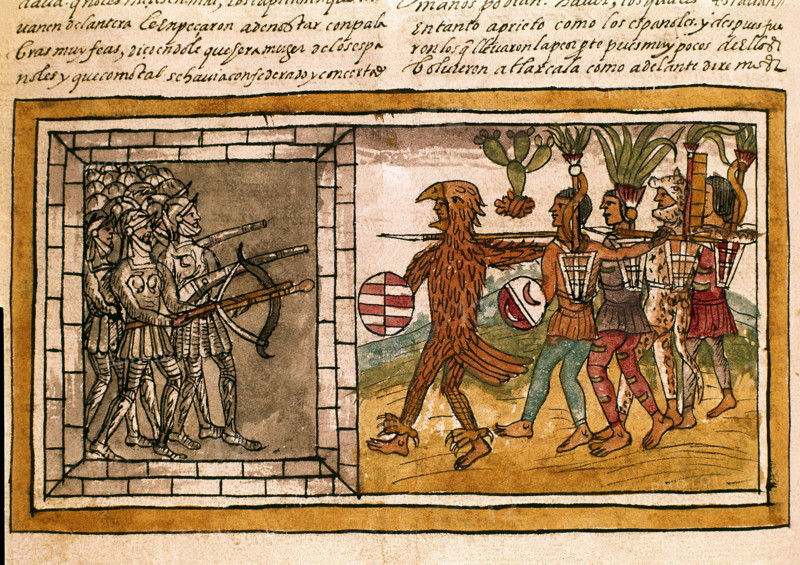 los capitanes que
uan en delantera le Enpeçaron a denostar con pala
bras muy feas, diciendole que sera muger de los espa
ñoles y que como tal se havia confederado y concertado
manos podian. hauer, los quales estauan
En tanto aprieto como los españoles. y despues fue
ron los q lleuaron la peor pte pues muy pocos de ellos
bolvieron a tlaxcala como adelante diremos